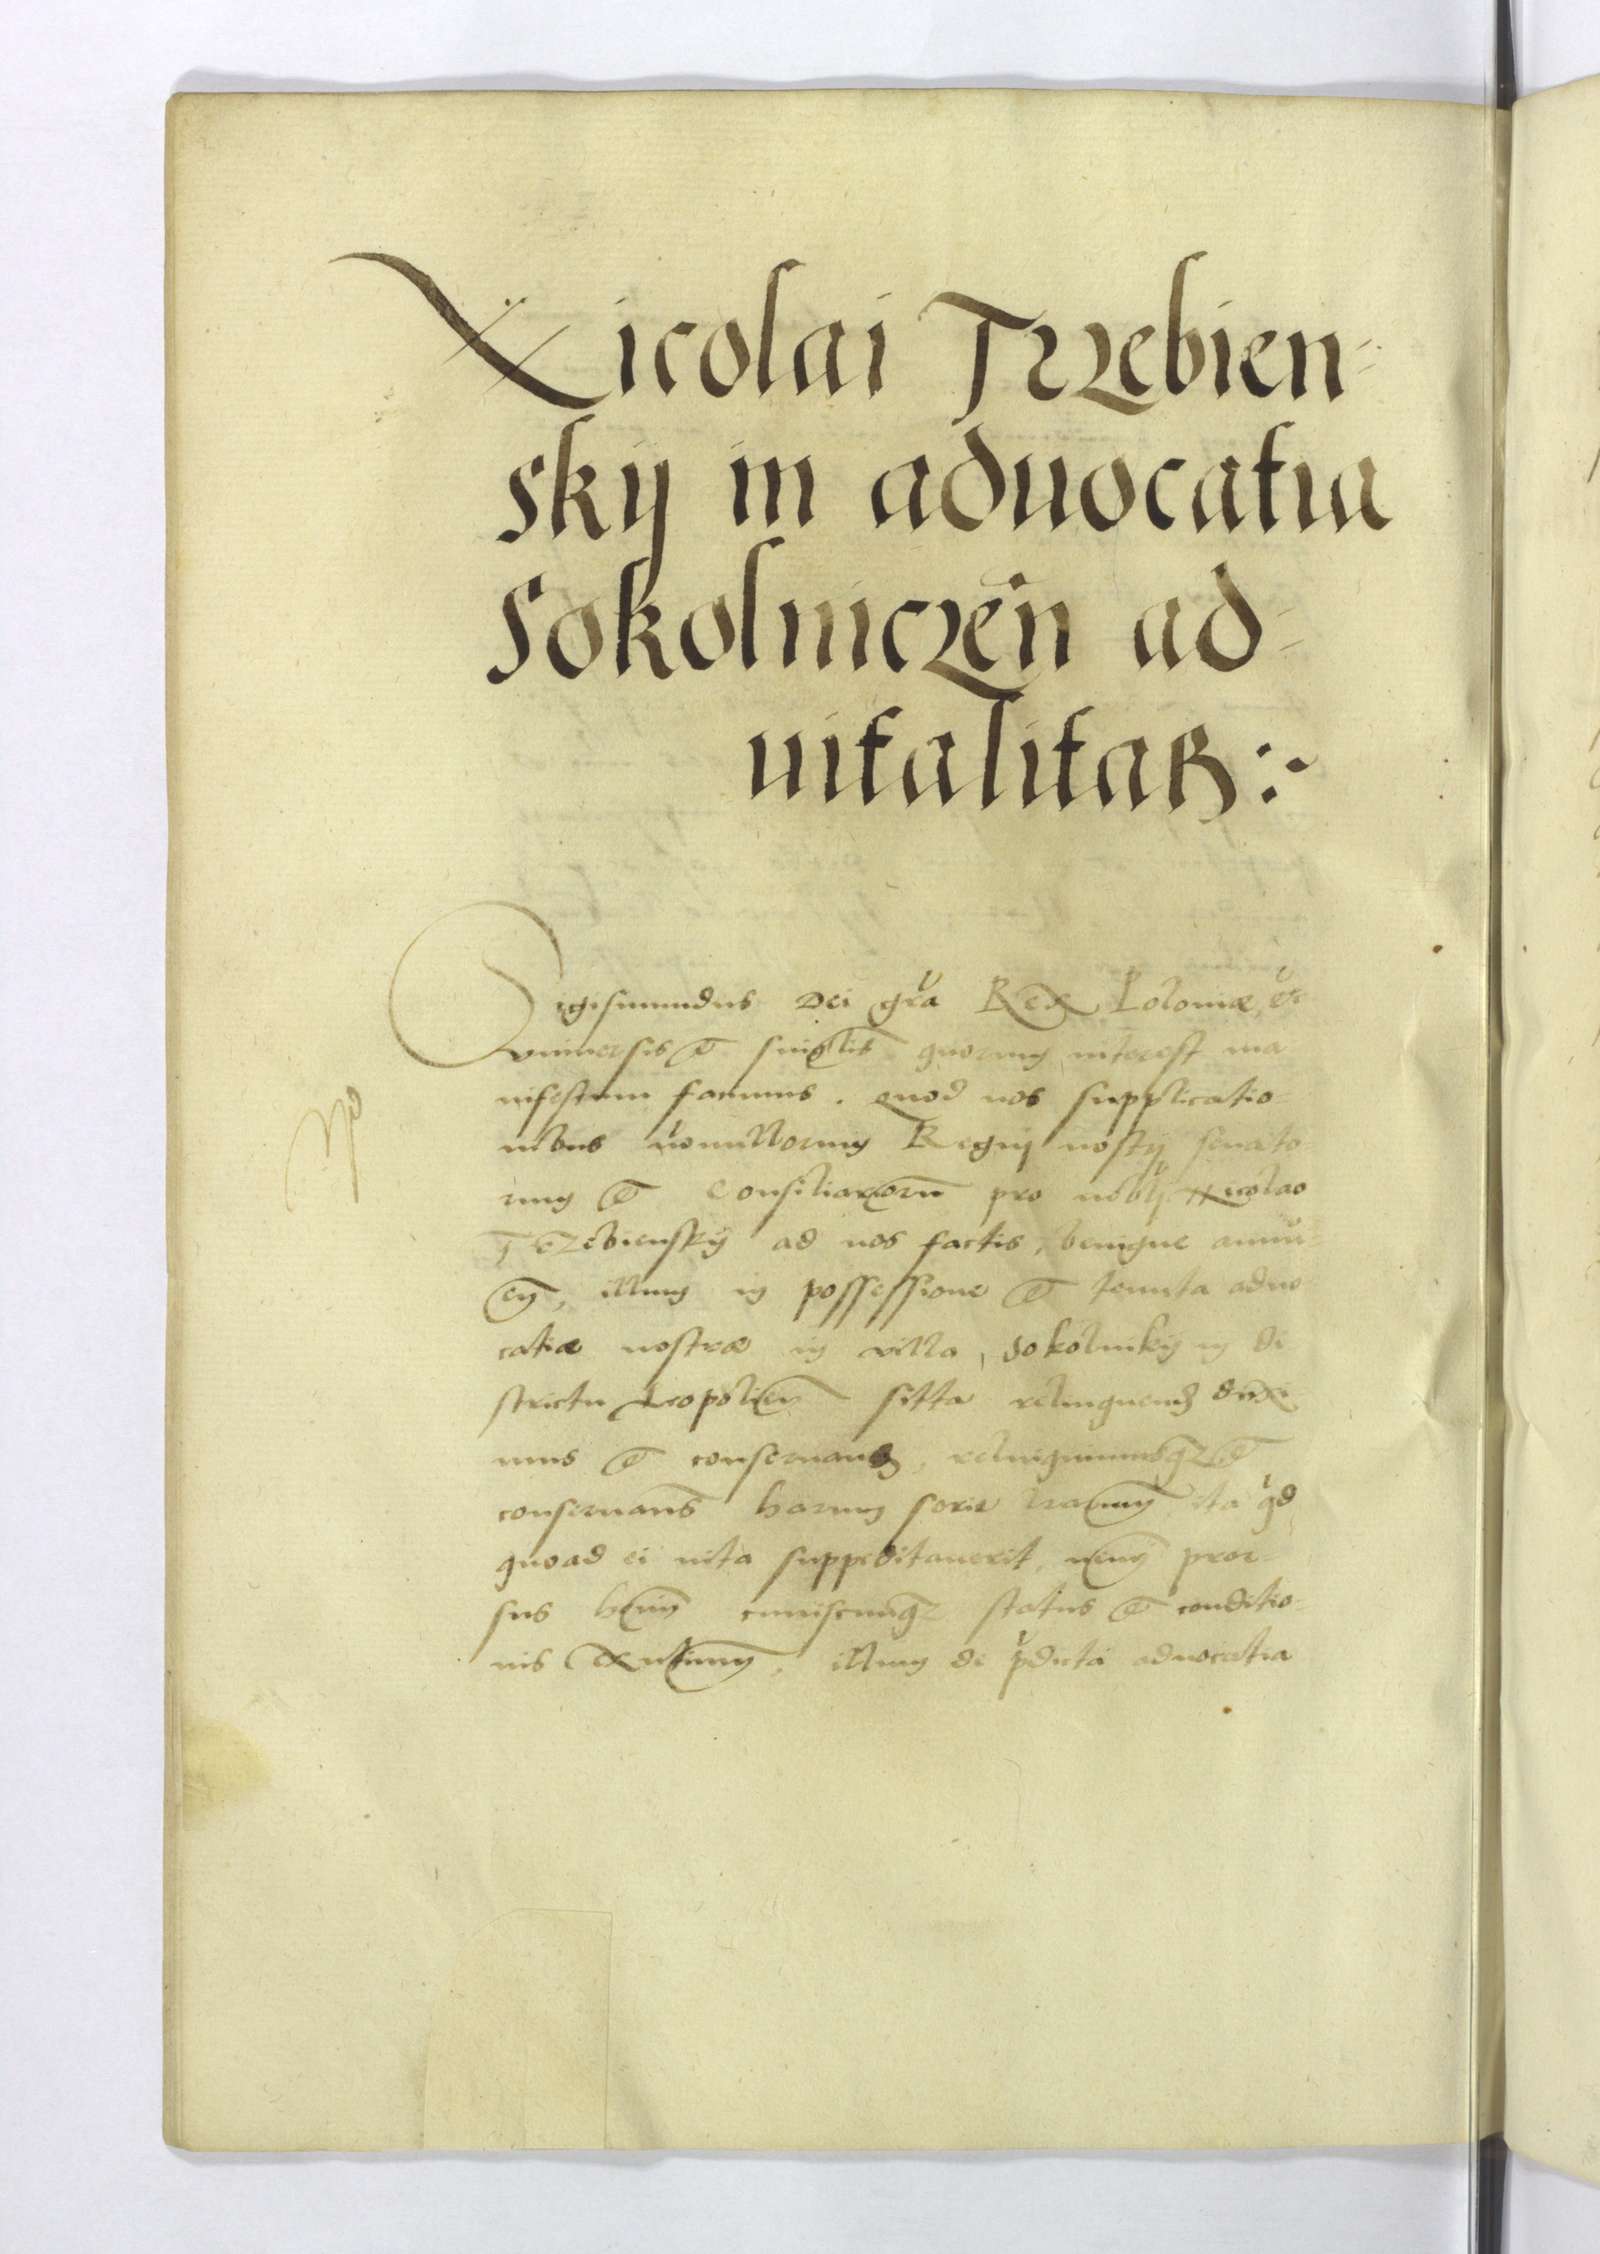 Nicolai Trzebien-
skij in aduocatia
Sokolniczen̄ ad-
uitalitas
Sigismundus Dei gra Rex Poloniæ etc
vniuersis et singlis quorum interest ma
nifestum facimus. quod nos supplicatio-
nibus nonnullorum Regnij nostrj senato-
rum et Consiliariorū pro nobli Nicolao
Trzebienskij ad nos factis, benigne annu-
en, illum in possessione et tenuta aduo
catiæ nostræ in villa, Sokolnikij in di
strictu Leopolien sitta relinquend duxi-
mus et conseruand, relinquimusq et
conseruams harum serie lrarum ita qd
quoad ei uita suppeditauerit, nem pror-
sus hoim cuiuscunq status et conditio-
nis existimm, illum de pdicta aduocatia